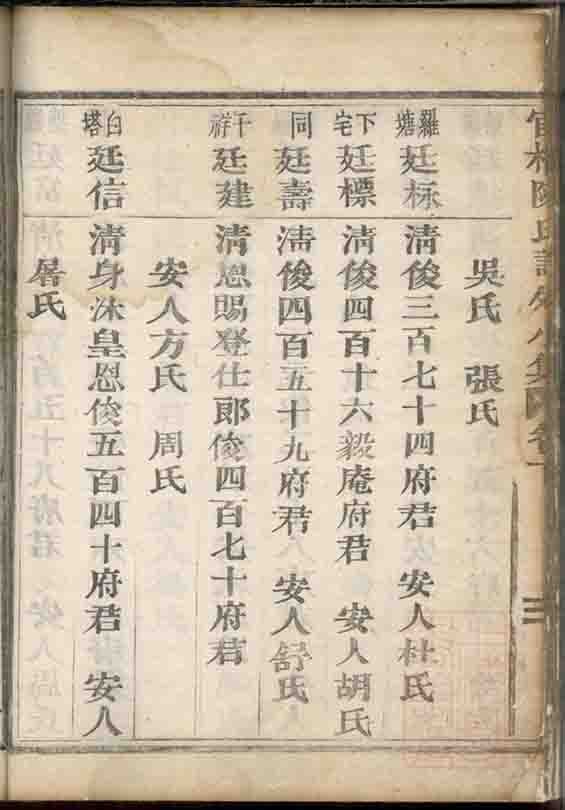 吳氏 張氏
羅塘 廷栐 清俊三百七十四府君 安人杜氏
下宅 廷標 清俊四百十六毅庵府君 安人胡氏
同 廷壽 清俊四百五十九府君 安人舒氏
干祥 廷建 清恩賜登仕郎俊四百七十府君
安人方氏 周氏
白塔 廷信 清身沐皇恩俊五百四十府君 安人
屠氏